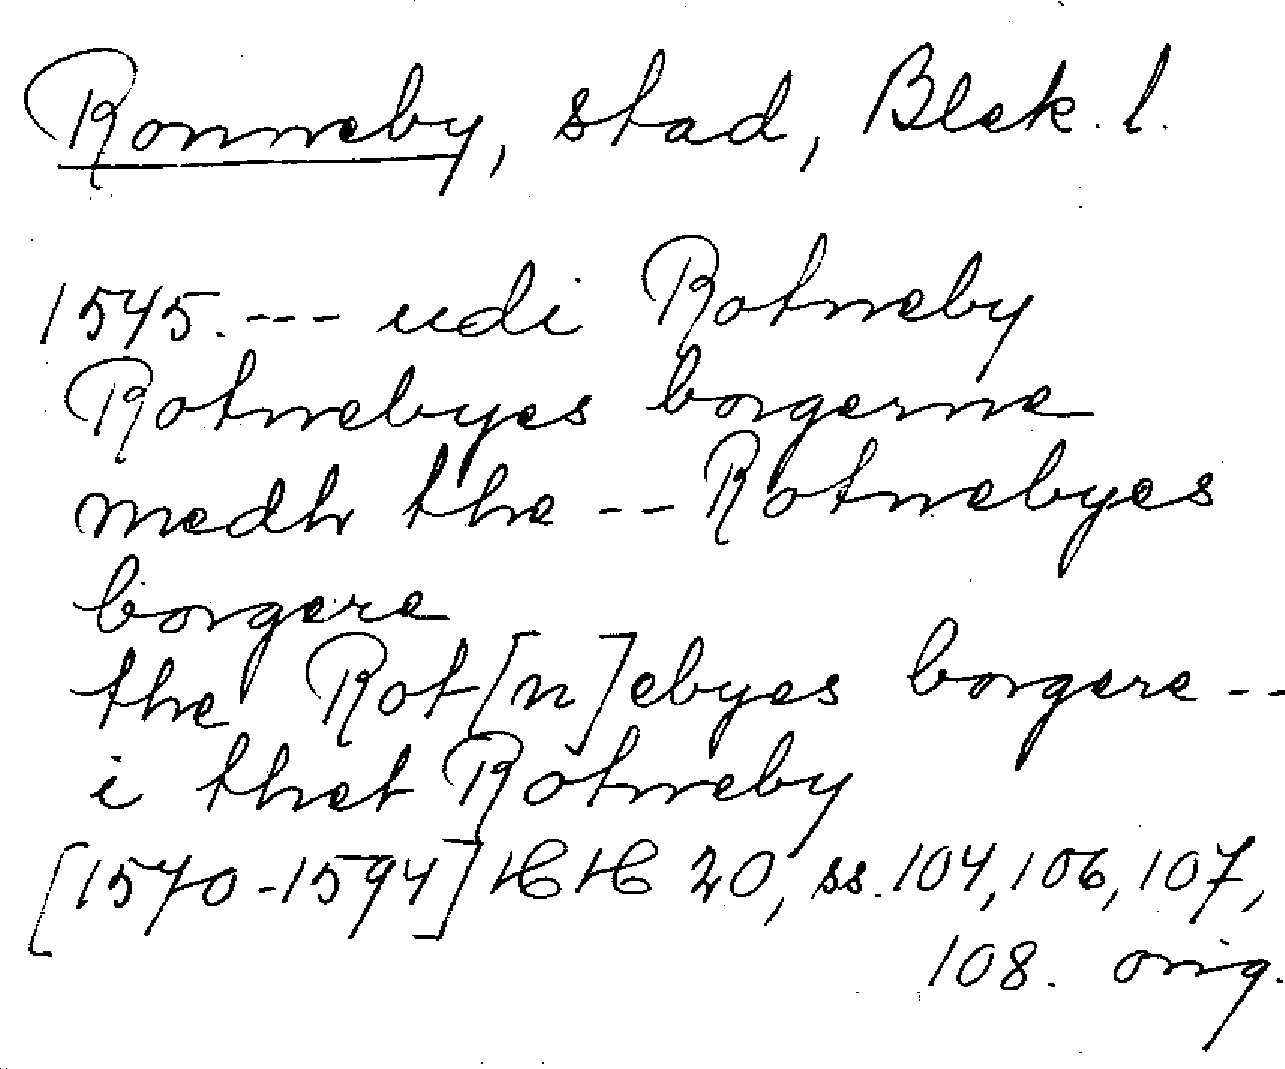 Ronneby, stad, Blek. l.
1545. --- udi Rotneby
Rotnebyes borgerne
medh the -- Rotnebyes
borgere
the Rot[n]ebyes borgere --
i thet Rotneby
[1570-1594] HH 20, ss. 104, 106, 107,
108. orig.